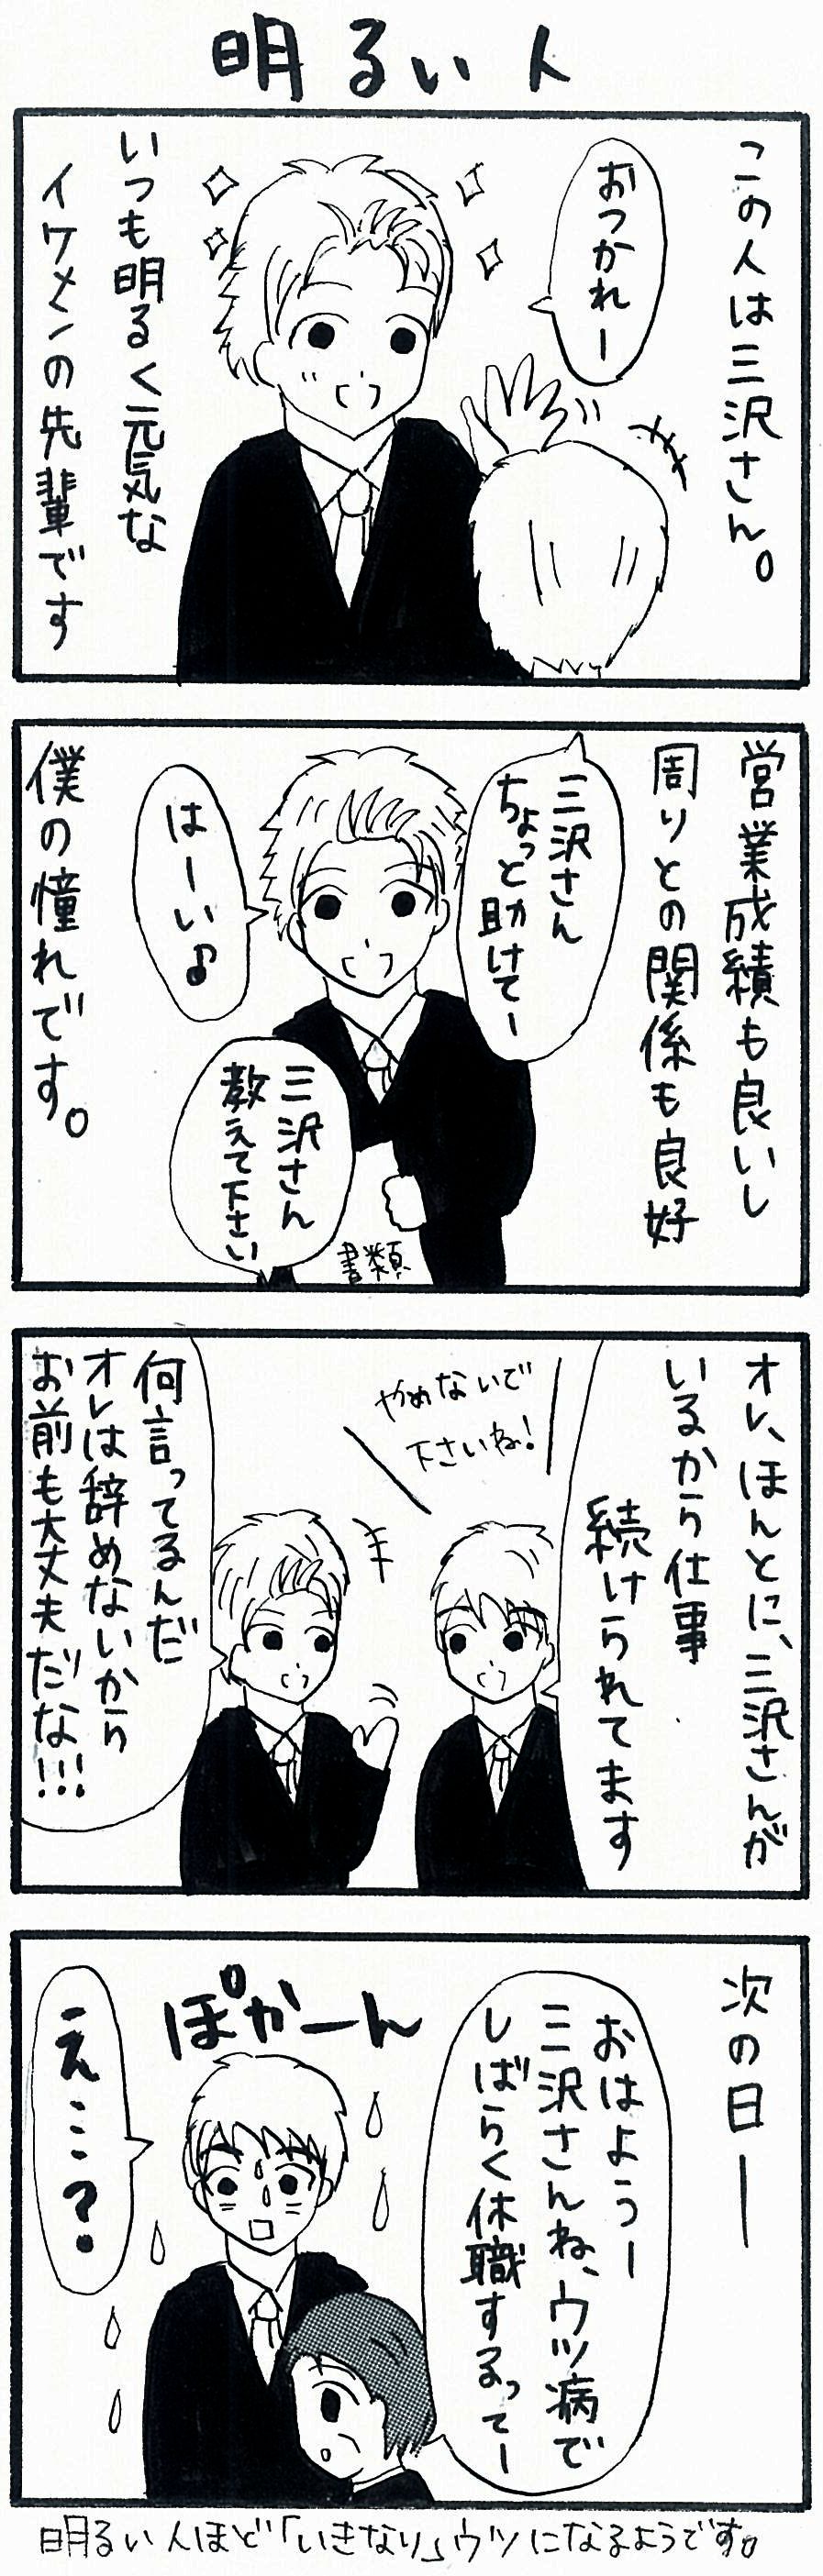 明るい人
この人は三沢さん。
おつかれー
いつも明るく元気な
イケメンの先輩です
営業成績も良いし
周りとの関係も良好
三沢さん
ちょっと助けてー
はーい♪
三沢さん
教えて下さい
書類
僕の憧れです。
オレ、ほんとに、三沢さんが
いるから仕事
続けられてます
やめないで
下さいね!
何言ってるんだ
オレは辞めないから
お前も大丈夫だな!!!
次の日―
おはようー
三沢さんね、ウツ病で
しばらく休職するってー
ぽかーん
え…?
明るい人ほど「いきなり」ウツになるようです。